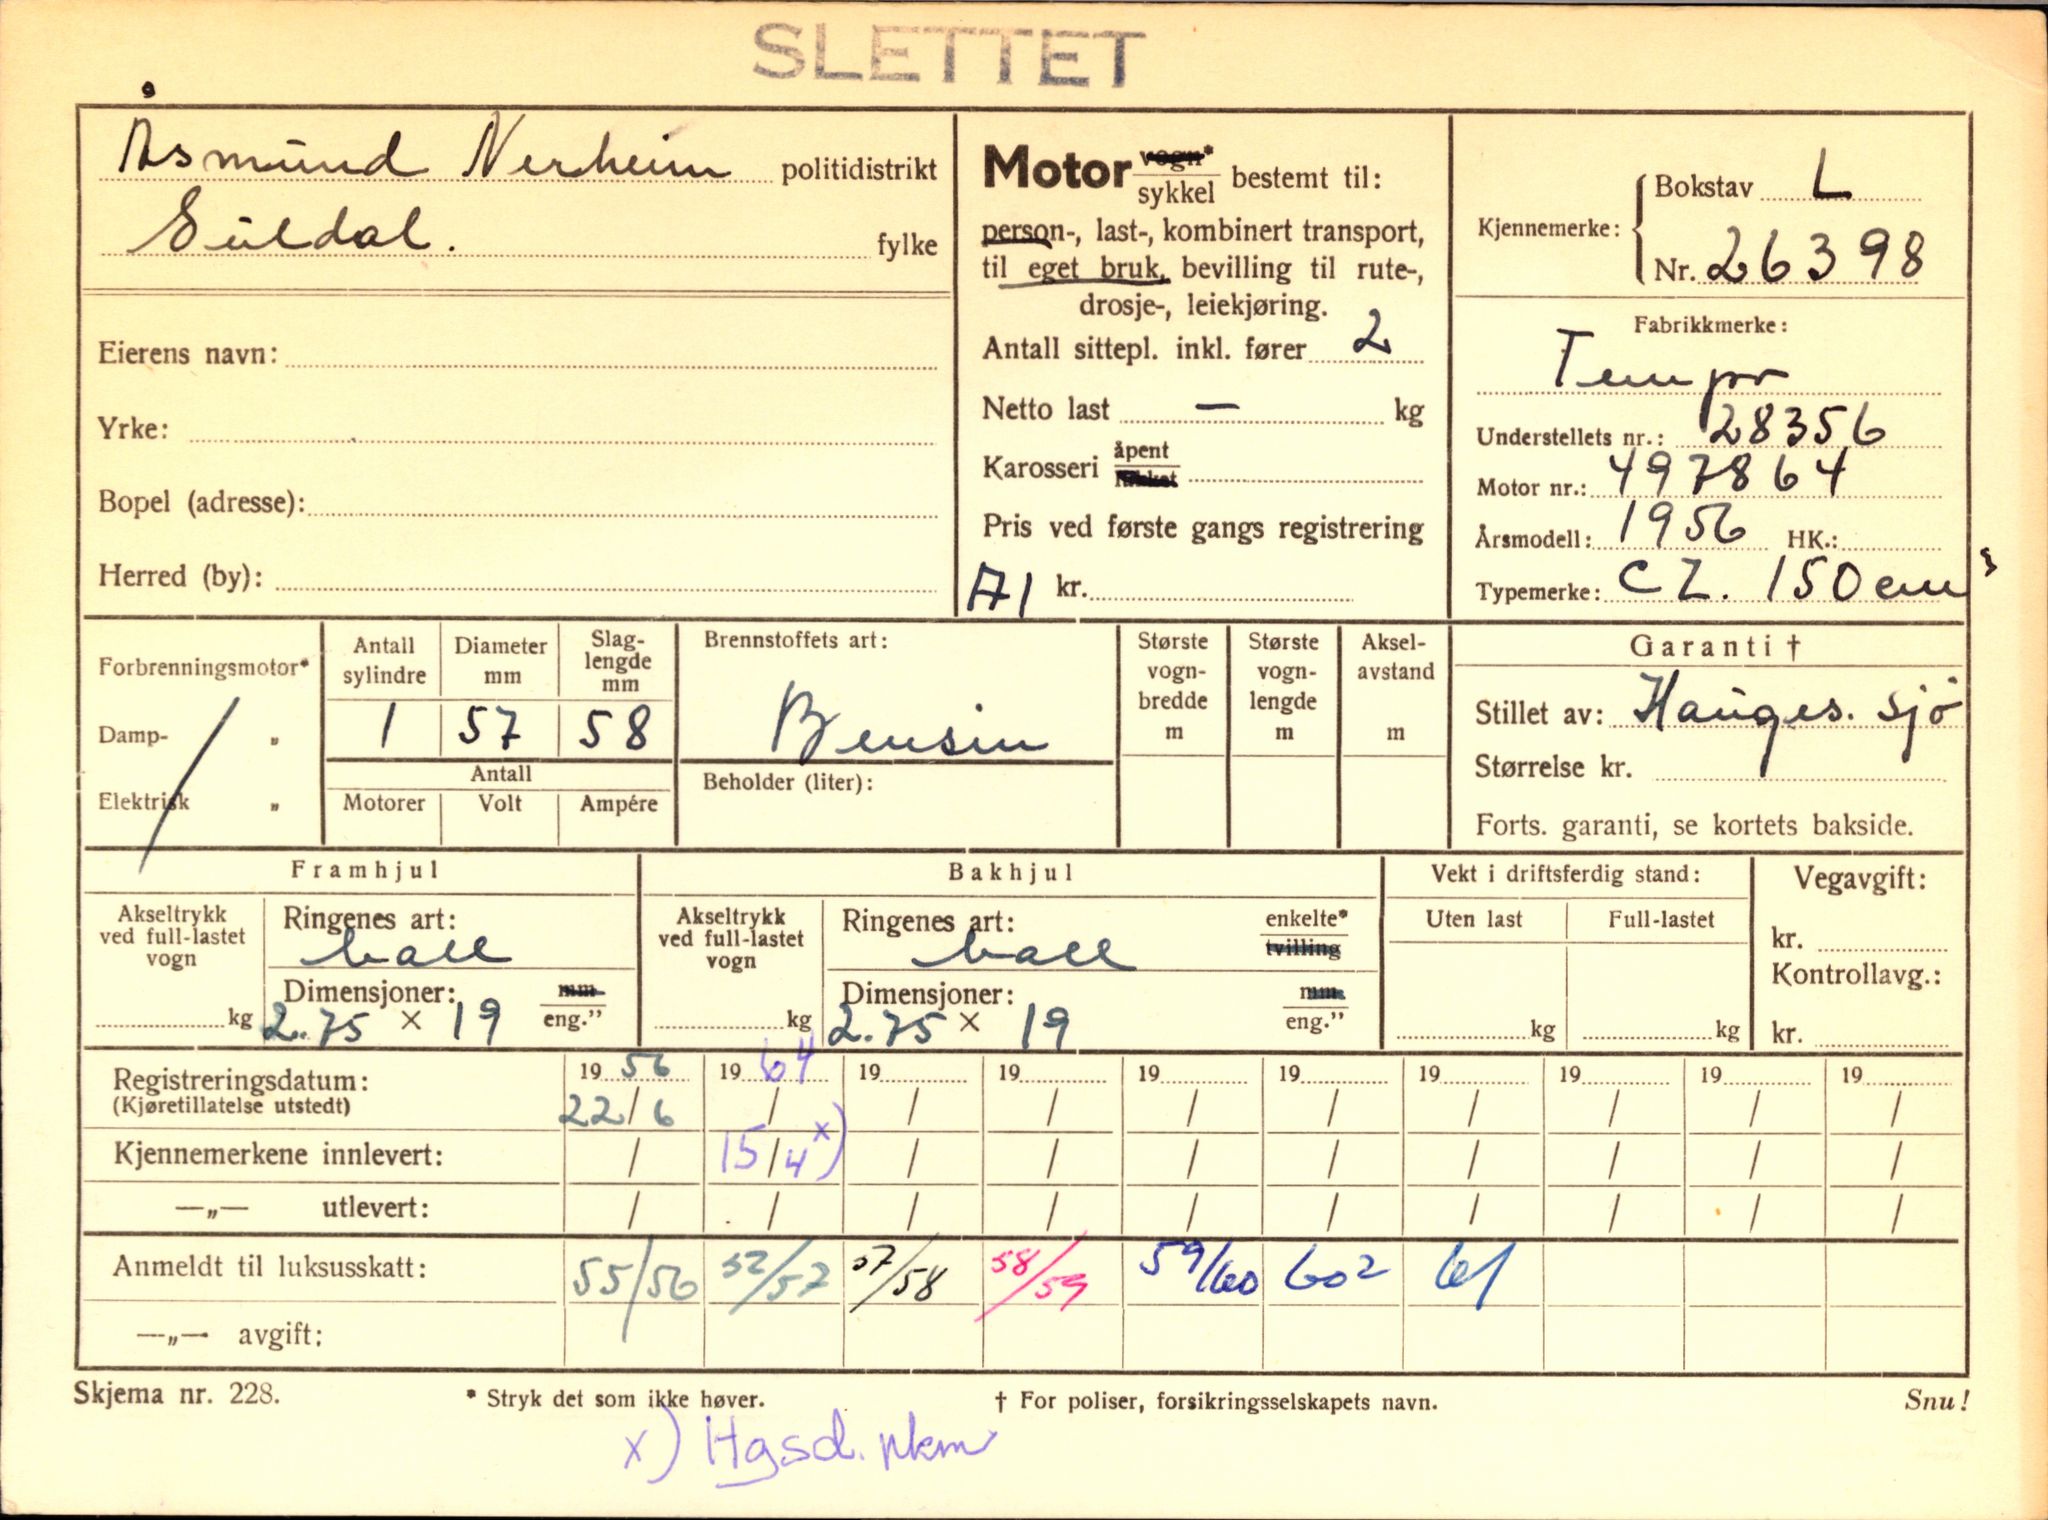 SLETTET
Åsmund Nerheim politidistrikt
Suldal. fylke
Eierens navn:
Yrke:
Bopel (adresse):
Herred (by):
Motor vogn* sykkel bestemt til:
person-, last-, kombinert transport,
til eget bruk, bevilling til rute-,
drosje-, leiekjøring.
Antall sittepl. inkl. fører 2
Netto last — kg
Karosseri åpent lukket
Pris ved første gangs registrering
A1 kr.
Kjennemerke: Bokstav L
Nr. 26398
Fabrikkmerke:
Tempo
Understellets nr.: 28356
Motor nr.: 497864
Årsmodell: 1956 HK.:
Typemerke: CZ. 150 cm³
Forbrenningsmotor*
Damp- „
Elektrisk „
Antall sylindre Diameter mm Slag-lengde mm
1 57 58
Antall
Motorer Volt Ampére
Brennstoffets art:
Bensin
Beholder (liter):
Største vogn-bredde m
Største vogn-lengde m
Aksel-avstand m
Garanti †
Stillet av: Hauges. Sjø
Størrelse kr.
Forts. garanti, se kortets bakside.
Framhjul
Akseltrykk ved full-lastet vogn
kg
Ringenes art:
ball
Dimensjoner: mm
2.75 × 19 eng."
Bakhjul
Akseltrykk ved full-lastet vogn
kg
Ringenes art: enkelte*
ball tvilling
Dimensjoner: mm
2.75 × 19 eng."
Vekt i driftsferdig stand:
Uten last Full-lastet
kg kg
Vegavgift:
kr.
Kontrollavg.:
kr.
Registreringsdatum: 19 56 19 64 19 19 19 19 19 19 19 19
(Kjøretillatelse utstedt) 22/6 / / / / / / / / /
Kjennemerkene innlevert: / 15/4 x) / / / / / / / /
—„— utlevert: / / / / / / / / / /
Anmeldt til luksusskatt: 55/56 /57 57/58 58/59 59/60 602 61
—„— avgift:
Skjema nr. 228. * Stryk det som ikke høver. † For poliser, forsikringsselskapets navn. Snu!
x) Hgsd. pkm